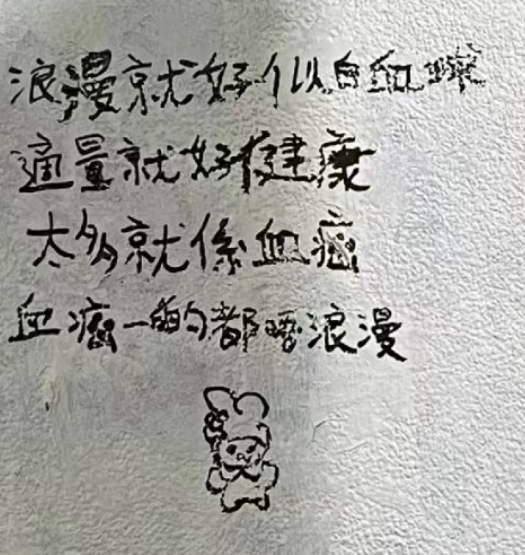 浪漫就好似白血球
適量就好健康
太多就係血癌
血癌一啲都唔浪漫